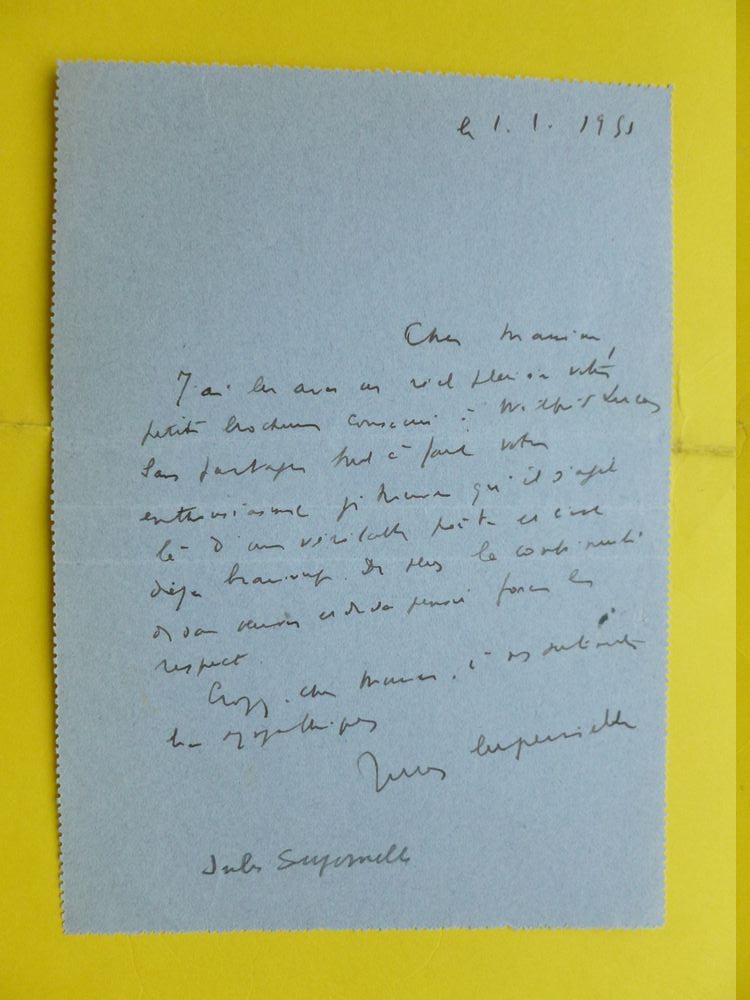 le 1. 1. 1951
Cher Monsieur,
J'ai lu avec un réel plaisir votre
petite brochure consacrée à Wilfrid Lucas
Sans partager tout à fait votre
enthousiasme je trouve qu'il s'agit
là d'un véritable poète et c'est
déjà beaucoup. De plus la continuité
de son œuvre et de sa pensée force le
respect.
Croyez, cher Monsieur, à mes sentiments
bien sympathiques
Jules Supervielle
Jules Supervielle